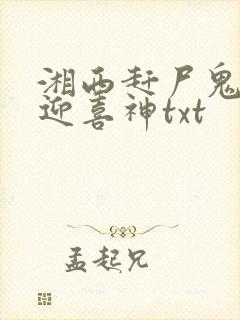 湘西赶尸鬼
迎喜神txt
孟起兄